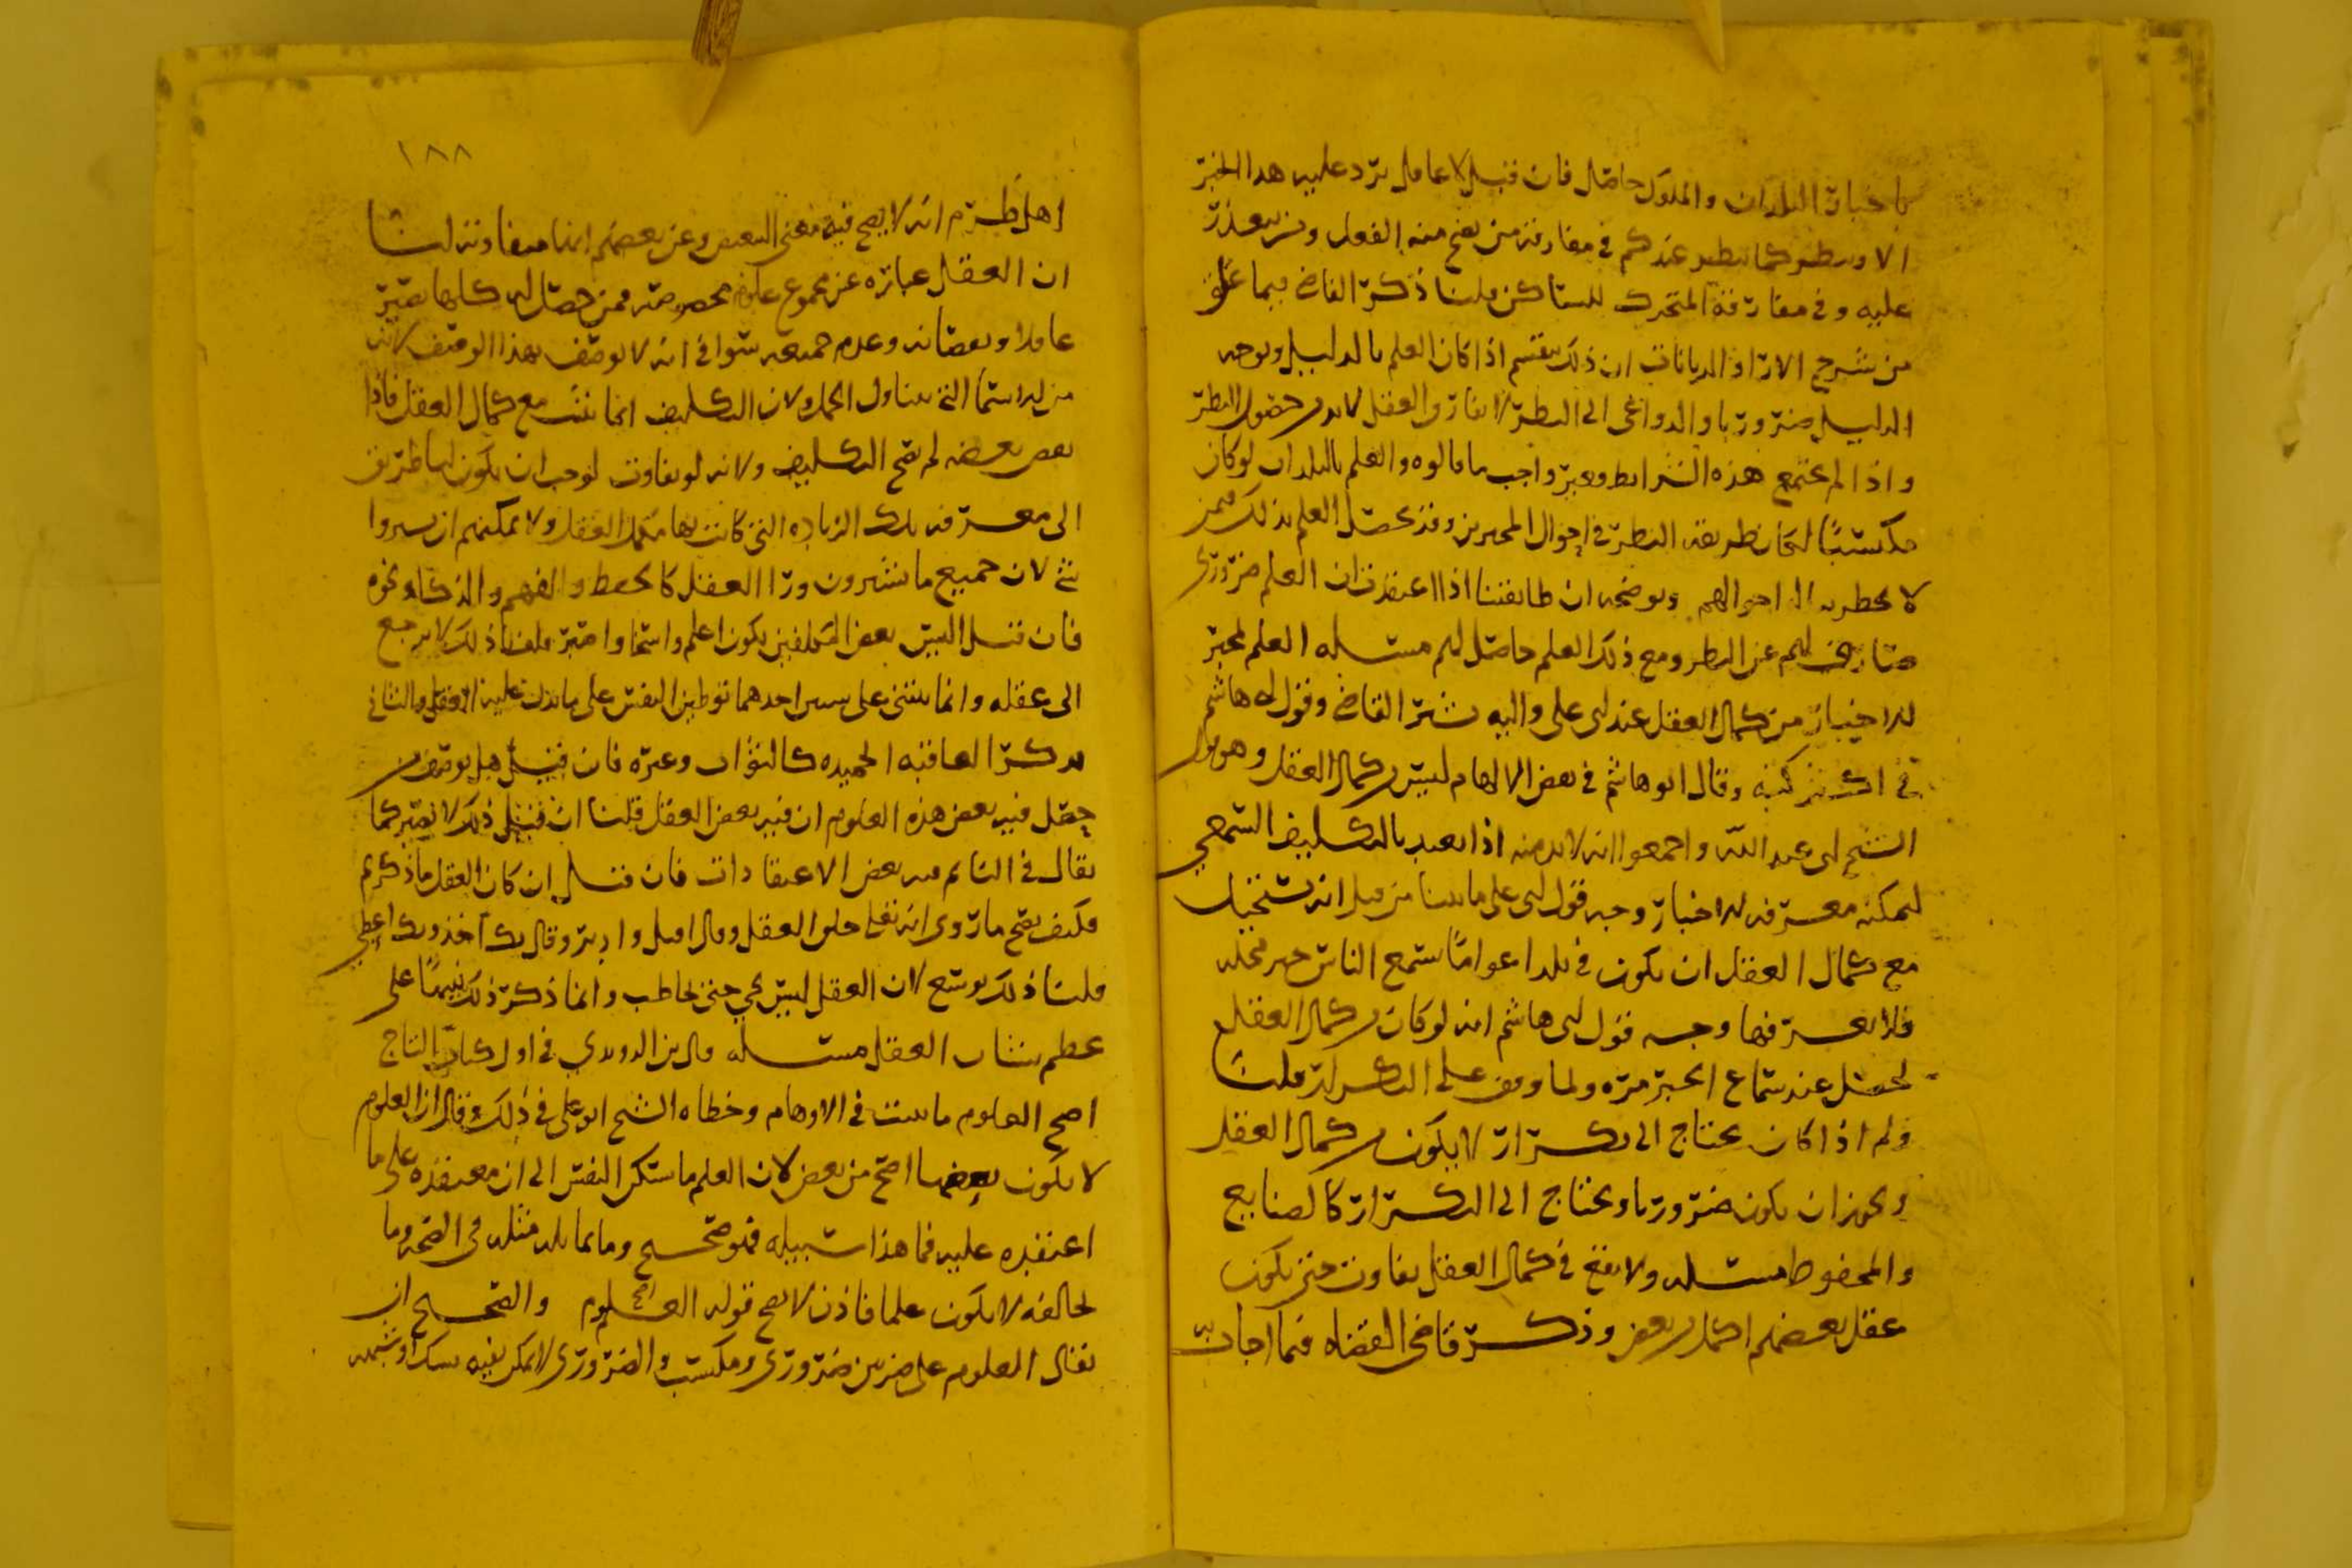 باخبار البلدان والملوك حاصل فان قيل لا عاقل يرد عليه هذا الخبر
الا وينظر كما ينظر عندكم في مفارقة من يصح منه الفعل ومن يتعذر
عليه وفي مفارقة المتحرك للساكن قلنا ذكر القاضي فيما علق
من شرح الارا والديانات ان ذلك ينقسم اذا كان العلم بالدليل وبوجه
الدليل ضروريا والدواعي الى النظر والعقل لابد حصول النظر
واذا لم تجتمع هذه الشرايط فغير واجب ما قالوه والعلم بالبلدان لو كان
مكتسبا لكان طريقه النظر في احوال المخبرين وقد يحصل العلم بذلك لمن
لا يخطر بباله احوالهم ويوضحه ان طايفتنا اذا اعتقدت ان العلم ضروري
صارف لهم عن النظر ومع ذلك العلم حاصل لهم مسئله العلم بمخبر
الاخبار من كمال العقل عند ابي علي واليه يشير القاضي وقول ابي هاشم
في اكثر كتبه وقال ابو هاشم في بعض الالهام ليس من كمال العقل وهو قول
الشيخ ابي عبد الله واجمعوا انه لابد منه اذا تعبد بالتكليف السمعي
ليمكنه معرفة الاخبار وجه قول ابي علي ما بينا من قبل انه يستحيل
مع كمال العقل ان يكون في بلد اعواما يسمع الناس
فلا يعرفها وجه قول ابي هاشم انه لو كان من كمال العقل
لحصل عند سماع الخبر مره ولما وقف على التكرار قلنا
ولم اذا كان يحتاج الى تكرار لا يكون من كمال العقل
ويجوز ان يكون ضروريا ويحتاج الى التكرار كالصنايع
والمحفوظ مسئله ولا يقع في كمال العقل تفاوت حتى يكون
عقل بعضهم اكمل من بعض وذكر قاضي القضاه فيما اجاب به
١٨٨
اهل طرم انه لا يصح فيه معنى النقص وعن بعضهم انها متفاوته لنا
ان العقل عباره عن مجموع علوم مخصوصه فمن حصل له كلها يعتبر
عاقلا ونقصانه وعدم جميعه سوا في انه لا يوصف بهذا الوصف لانه
من الاسما التي تتناول الجمل ولان التكليف انما يثبت مع كمال العقل فاذا
نقص بعضه لم يصح التكليف ولانه لو تفاوت لوجب ان يكون لنا طريق
الى معرفه تلك الزياده التي كانت بها مكمل العقل ولا يمكنهم ان يشيروا
شي لان جميع ما يشيرون ورا العقل كالحفظ والفهم والذكا ونحوه
فان قيل اليس بعض المكلفين يكون اعلم واسخا واصبر قلنا ذلك لا يرجع
الى عقله وانما يبتني على شيين احدهما توطين النفس على ما يدل عليه العقل والثاني
تذكر العاقبه الحميده كالثواب وغيره فان قيل هل يوصف من
حصل فيه بعض هذه العلوم ان فيه بعض العقل قلنا ان قيل ذلك لا يضر كما
يقال في النايم فيه بعض الاعتقادات فان قيل ان كان العقل ما ذكرتم
فكيف يصح ما روي انه تعالى خلق العقل وقال اقبل وادبر وقال بك آخذ وبك اعطي
قلنا ذلك توسع لان العقل ليس بحي حتى يخاطب وانما ذكر ذلك تنبيها على
عظم شان العقل مسئله قال بن الروندي في اول كتاب التاج
اصح العلوم ما ثبت في الاوهام وخطاه الشيخ ابو علي في ذلك وقال ان العلوم
لا يكون بعضها اصح من بعض لان العلم ما سكن النفس الى ان معتقده على ما
اعتقده عليه فما هذا سبيله فهو صحيح وما يماثله مثله في الصحه وما
يخالفه لا يكون علما فاذن لا يصح قوله اصح العلوم والصحيح ان
يقال العلوم على ضربين ضروري ومكتسب والضروري لا يمكن نفيه بشك او شبهه